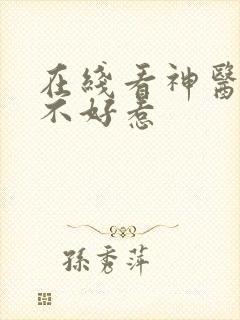 在綫看神醫
不好惹
孫秀萍